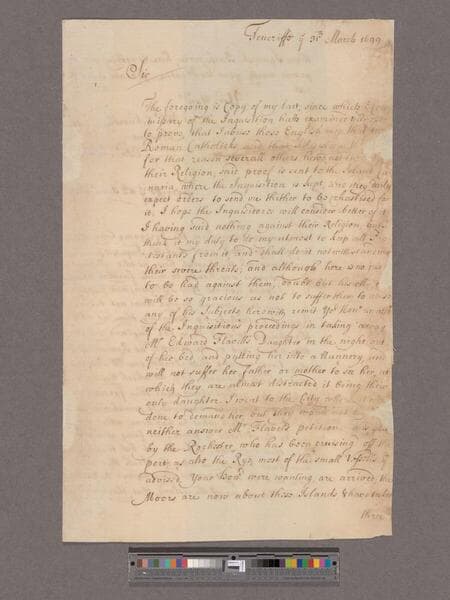 Teneriffe ye 31th March 1699
Sir
The foregoing is Copy of my last, since which
of the Inquisition hath examined
to prove, that I abuse those English men that
Roman Catholicks and
for that reason severall others
their Religion, proof is sent to the Island Ca
naria, where the Inquisition is kept, and they daily
expect orders to send me thither to be chastised for
it, I hope the Inquisitors will consider better of it
I having said nothing against their Religion, but
think it my duty to do my utmost to keep all Pro
testants from it and shall do it notwithstanding
their severe threats, and although here is no
to be had against them, doubt not his
will be so gracious as not to suffer them to abuse
any of his Subjects herewith remit Yor Honr
of the Inquisitions proceedings in taking away
Mr Edward Flavells Daughter in the night out
of her bed and putting her into a Nunnery, and
will not suffer her father or mother to see her, at
which they are almost distracted it being their
only daughter, I went to the City
done to demand her, but they would
neither answer Mr Flavells petition
by the Rochester who has been cruising off the
port, as also the Rye, most of the small Vessells
advised Your Honr were wanting are arrived, the
Moors are now about these Islands & have taken
three